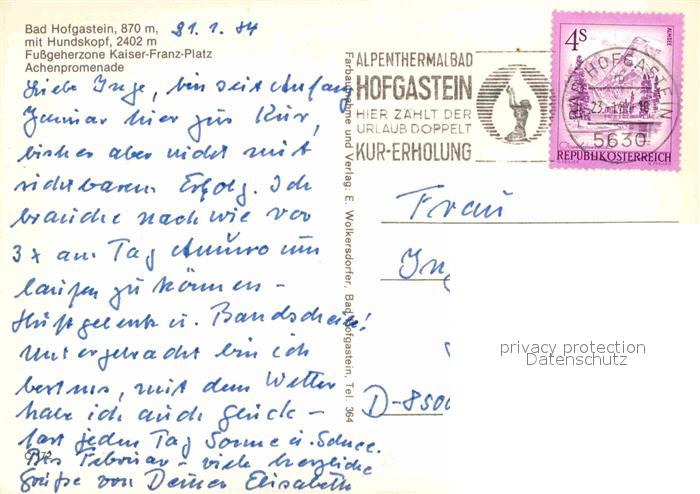 Bad Hofgastein, 870 m,
mit Hundskopf, 2402 m
Fußgeherzone Kaiser-Franz-Platz
Achenpromenade
21.1.84
Liebe Inge, bin seit Anfang
Januar hier zur Kur,
bisher aber nicht mit
sichtbarem Erfolg. Ich
brauche nach wie vor
3x am Tag um
laufen zu können –
Hüftgelenk u. Bandscheibe!
Untergebracht bin ich
bestens, mit dem Wetter
habe ich auch Glück –
fast jeden Tag Sonne u. Schnee.
Bis Februar – viele herzliche
Grüße von Deiner Elisabeth
Farbaufnahme und Verlag: E. Wolkersdorfer, Bad Hofgastein, Tel. 364
ALPENTHERMALBAD
HOFGASTEIN
HIER ZÄHLT DER
URLAUB DOPPELT
KUR-ERHOLUNG
BAD HOFGASTEIN
5630
4S
ALMSEE
REPUBLIK ÖSTERREICH
Frau
In
D-8500
privacy protection
Datenschutz